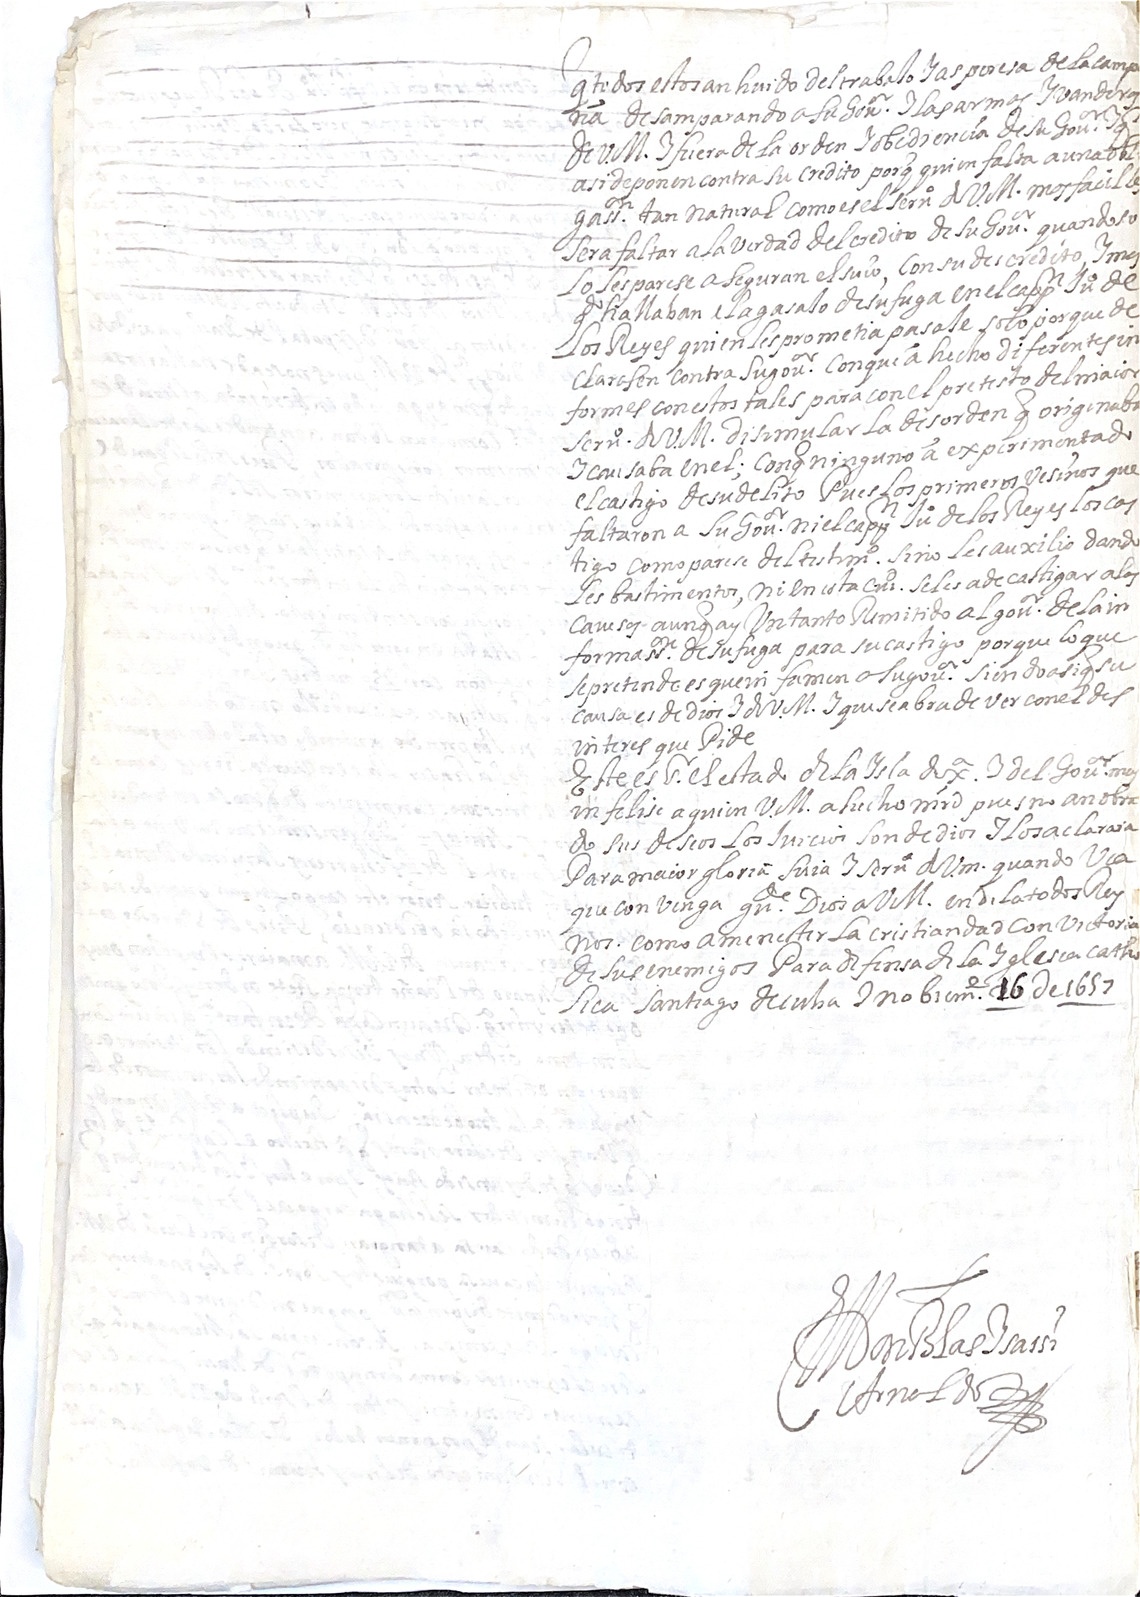 q todos estos an huido del trabalo J aspereza de la campa
ña desamparando a su Gou.ʳ J las armas J vanderas
de V.M. J fuera de la orden J obediencia de su Gou.ʳ J q
asi deponen contra su credito porq quien falta a una obli
gass.ⁿ tan natural como es el seru.º d V.M. mas facil les
sera faltar a la verdad del credito de su Gou.ʳ quando so
lo les parese aseguran el suio, con su descredito, J mas
q hallaban el agasalo de su fuga en el cap.ⁿ Ju.º de
los Reyes quien les prometia pasale solo porque de
clarasen contra su gou.ʳ conque a hecho diferentes in
formes con estos tales para con el pretesto del maior
seru.º d V.M. disimular la desorden q originaba
J causaba en el; conq ninguno a experimentado
el castigo de su delito Pues los primeros vesinos que
faltaron a su Gou.ʳ ni el cap.ⁿ Ju.º de los Reyes los cas
tigo como parese del testim.º sino les auxilio dando
les bastimentos, ni en esta ciu.ᵈ se les a de castigar a los
causos aunq ay Un tanto Remitido al gou.ʳ de la in
formass.ⁿ de su fuga para su castigo porque lo que
se pretende es que in famen a su gou.ʳ siendo asi q su
causa es de dios J d V.M. J que se abra de ver con el des
interes que Pide
Este es S.ʳ el estado de la Jsla d X.ᶜᵃ J del Gou.ʳ mas
in felise a quien V.M. a hecho mrd pues no an obra
do sus deseos los Juicios son de dios J los aclarara
Para maior gloria suia J seru.º d Vm. quando Vea
que convenga gu.ᵈᵉ Dios a V.M. en dilatodos Rey
nos. como a menester la cristiandad con Victoria
de sus enemigos Para defensa de la Jglesia catho
lica Santiago de cuba J nobiem.ᵉ 16 de 1657
Don Blas Jsassi
Arnoldo